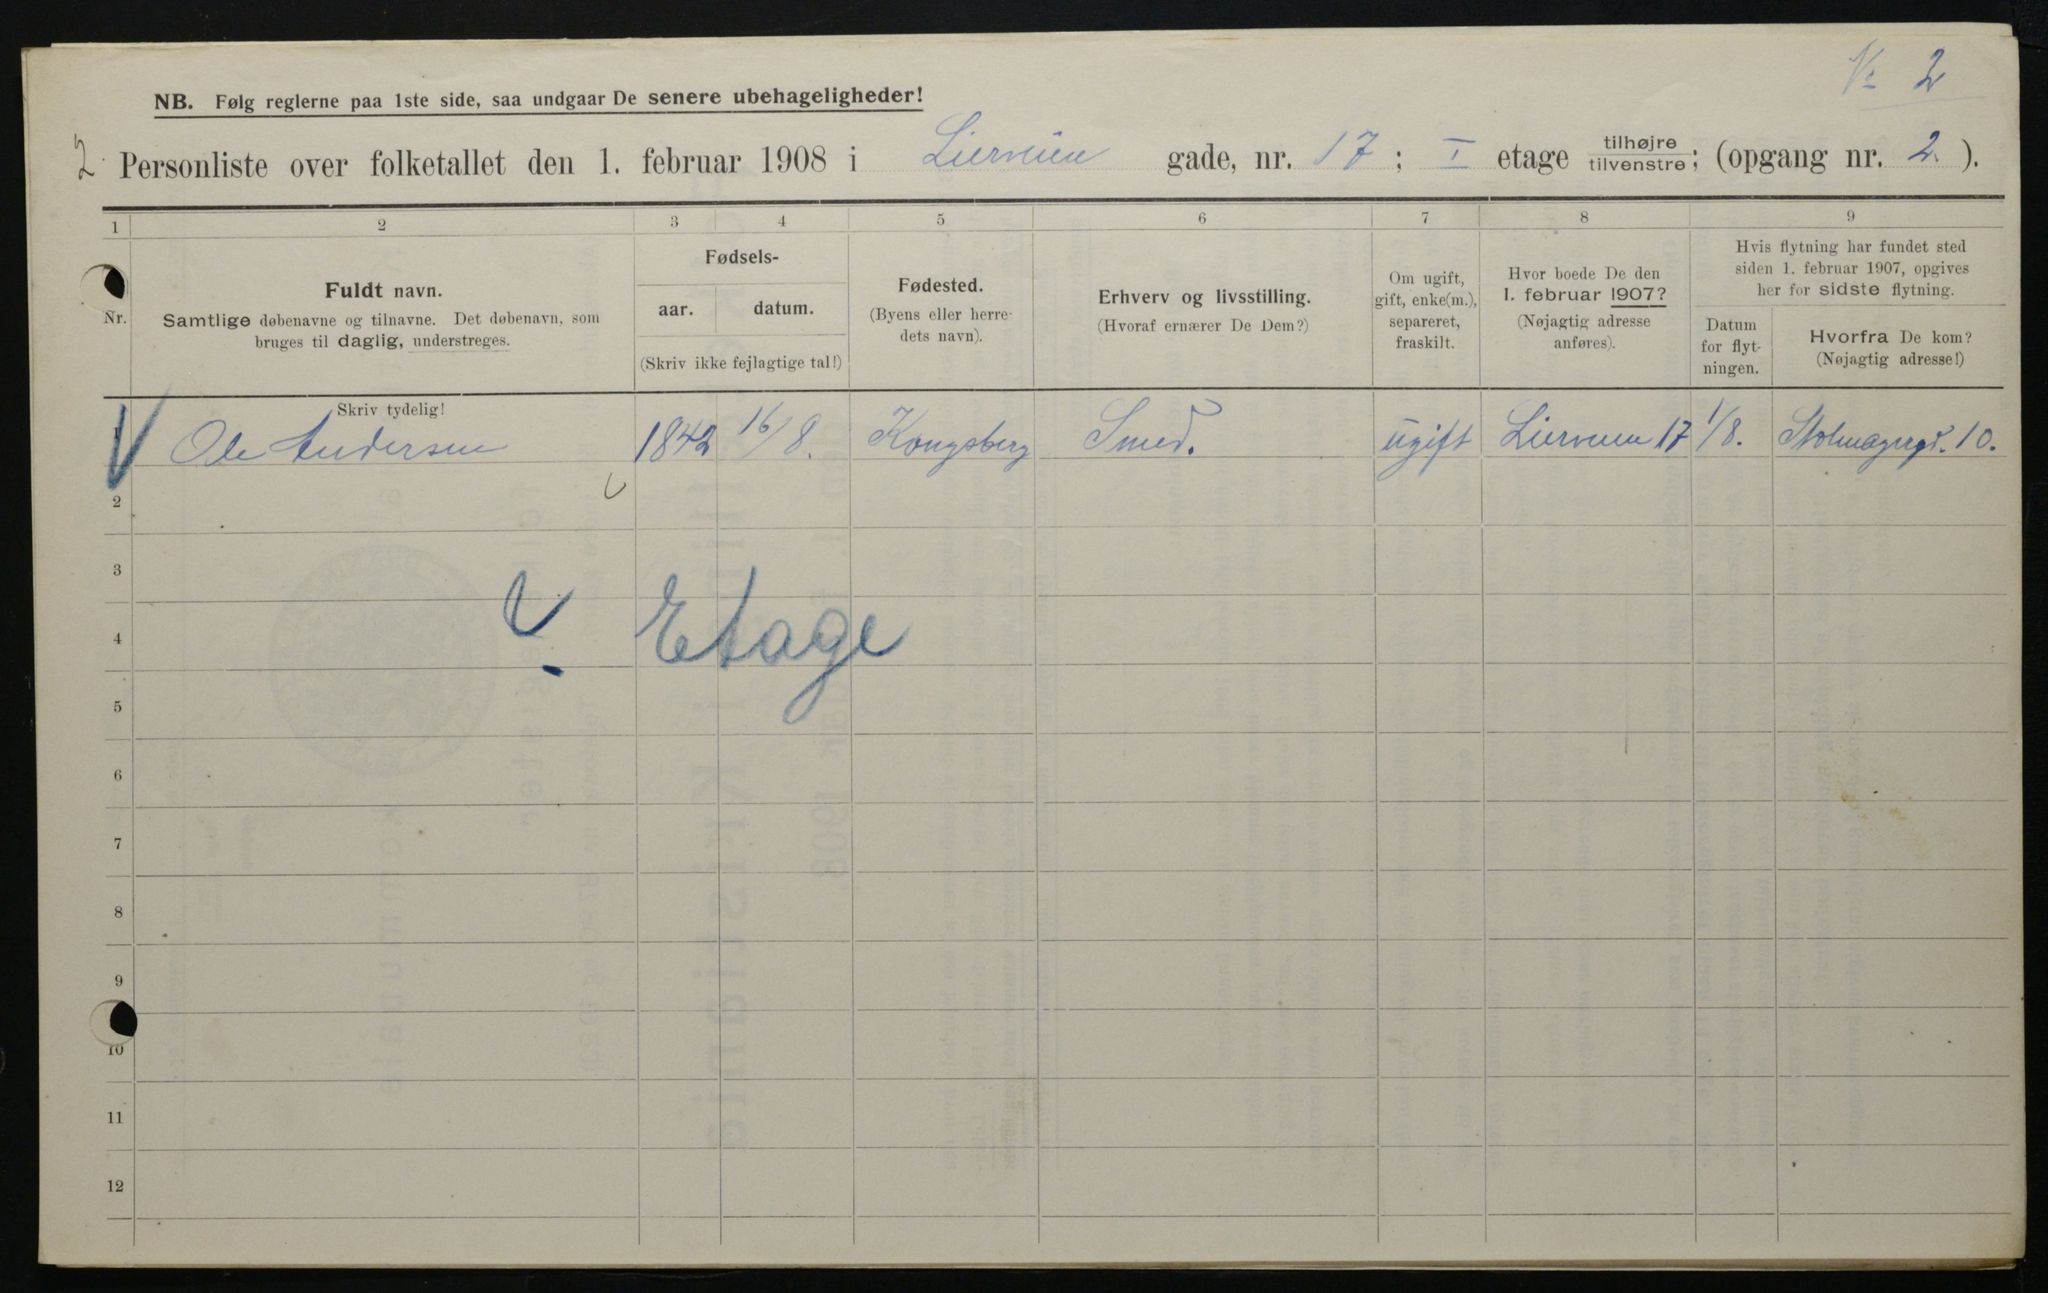 № 2
NB. Følg reglerne paa 1ste side, saa undgaar De senere ubehageligheder!
2 Personliste over folketallet den 1. februar 1908 i Lierveien gade, nr. 17; I etage tilhøjre tilvenstre; (opgang nr. 2.).
1 2 3 4 5 6 7 8 9
Nr.
Fuldt navn.
Samtlige døbenavne og tilnavne. Det døbenavn, som
bruges til daglig, understreges.
Fødsels-
aar. datum.
(Skriv ikke fejlagtige tal!)
Fødested.
(Byens eller herre-
dets navn).
Erhverv og livsstilling.
(Hvoraf ernærer De Dem?)
Om ugift,
gift, enke(m.),
separeret,
fraskilt.
Hvor boede De den
1. februar 1907?
(Nøjagtig adresse
anføres).
Hvis flytning har fundet sted
siden 1. februar 1907, opgives
her for sidste flytning.
Datum
for flyt-
ningen.
Hvorfra De kom?
(Nøjagtig adresse!)
Skriv tydelig!
1 Ole Andersen 1842 16/8. Kongsberg Smed. ugift Lierveien 17 1/8. Stolmagergd. 10.
2
3
4
Etage
5
6
7
8
9
10
11
12